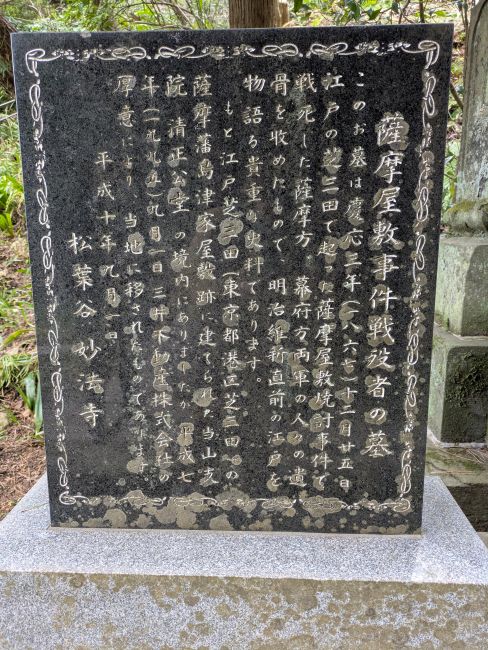 薩摩屋敷事件戦没者の墓
このお墓は慶応三年(一八六七)十二月廿五日
江戸の芝三田で起った薩摩屋敷焼討事件で
戦死した薩摩方 幕府方両軍の人々の遺
骨を收めたもので 明治維新直前の江戸を
物語る貴重な史料であります。
もと江戸芝三田(東京都港区芝三田)の
薩摩藩島津家屋敷跡に建てられた当山支
院 清正公堂 の境内にありましたが 平成七
年(一九九五)九月一日三井不動産株式会社の
厚意により、当地に移されたものであります
平成十年九月一日
松葉谷妙法寺